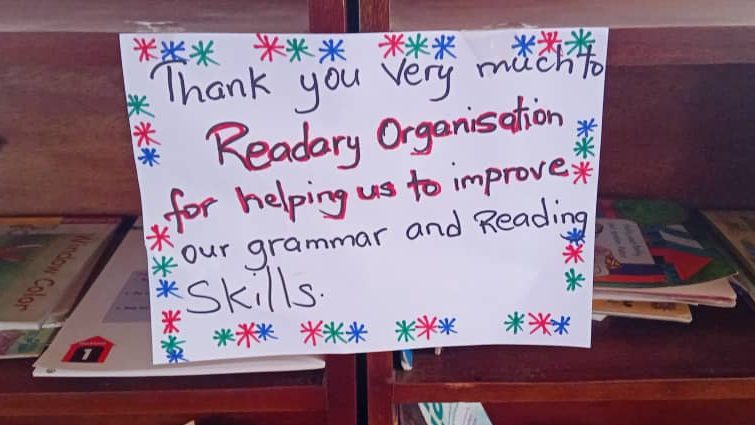 Thank you very much to
Readary Organisation
for helping us to improve
our grammar and Reading
Skills.
Window Color
1